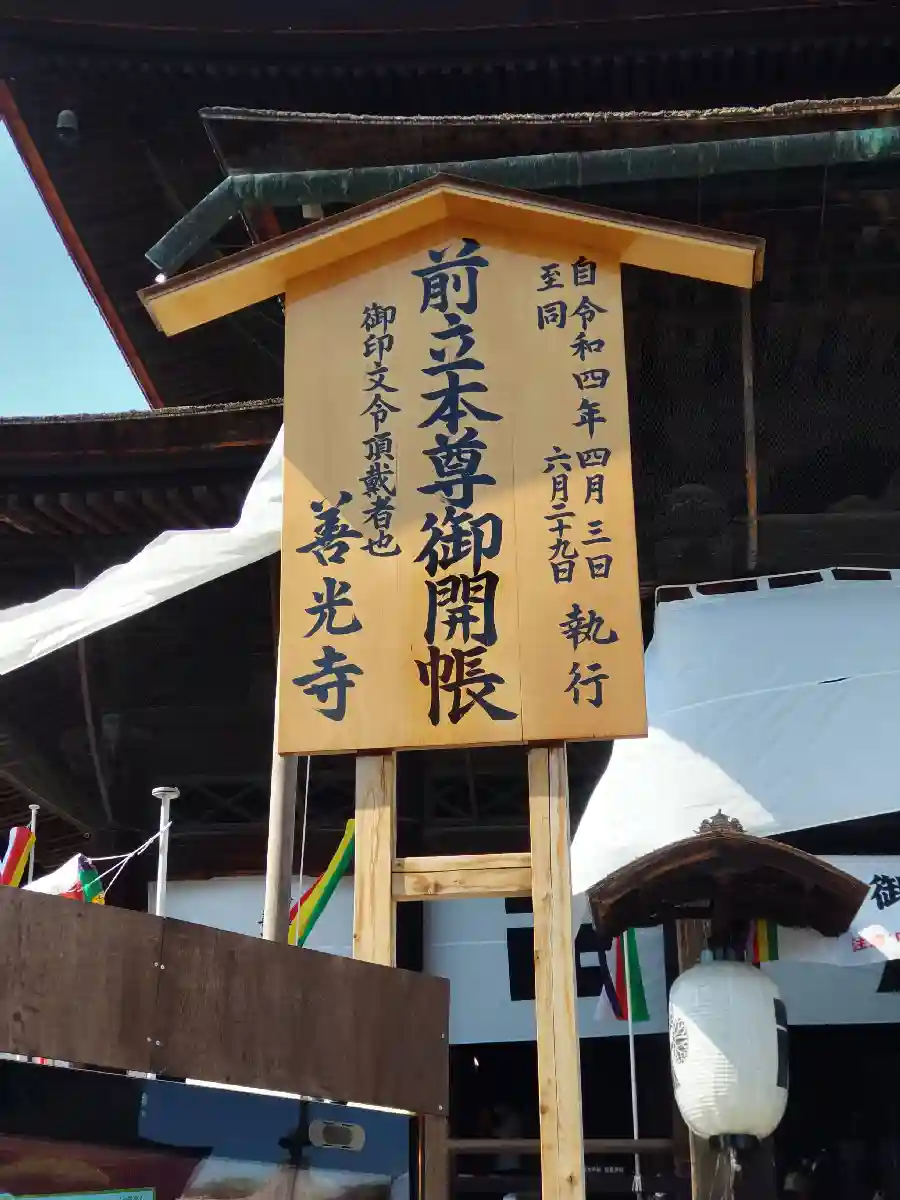 自令和四年四月三日
至同 六月二十九日
執行
前立本尊御開帳
御印文令頂戴者也
善光寺
御